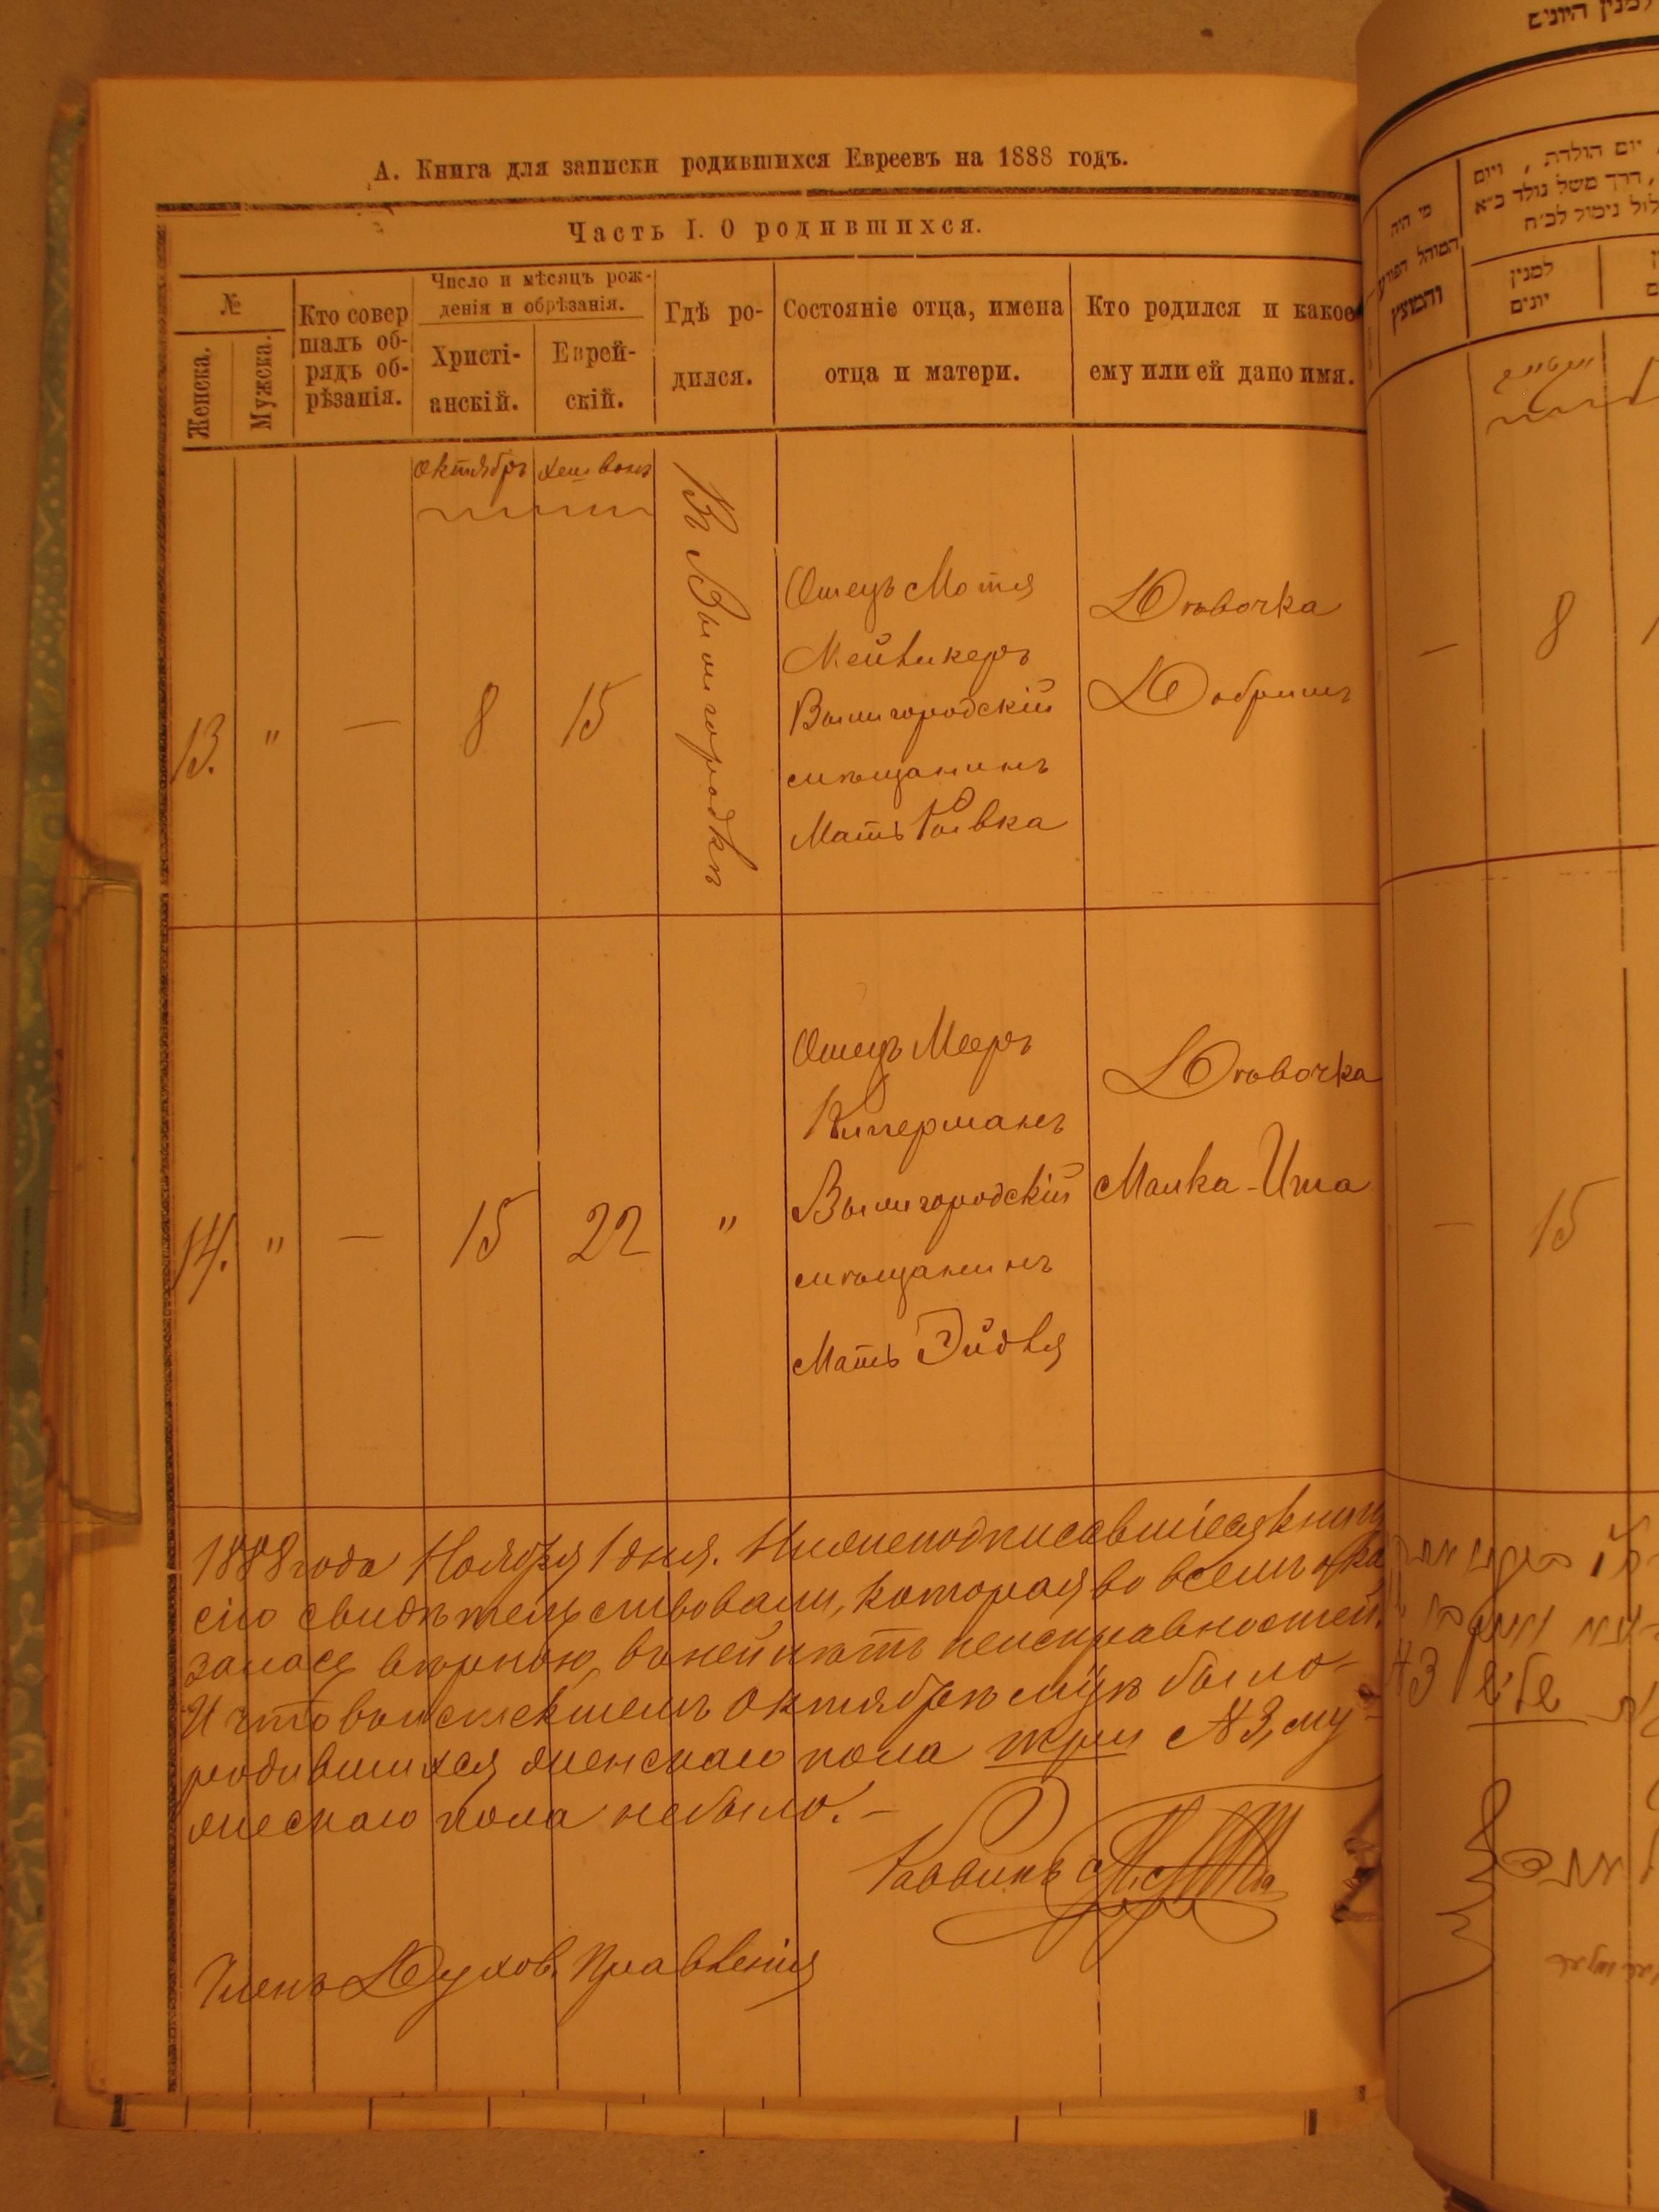 А. Книга для записки родившихся Евреевъ на 1888 годъ.
Часть I. О родившихся.
№
Женска.
Мужска.
Кто совер
шалъ об-
рядъ об-
рѣзанія.
Число и мѣсяцъ рож-
денія и обрѣзанія.
Христі-
анскій.
Еврей-
скій.
Гдѣ ро-
дился.
Состояніе отца, имена
отца и матери.
Кто родился и какое
ему или ей дано имя.
Октябрь Хешвонъ
13. " — 8 15
Въ Вышгородкѣ
Отецъ Мотя
Мейликеръ
Вышгородскій
мѣщанинъ
Мать Ривка
Дѣвочка
Добришъ
14. " — 15 22 "
Отецъ Мееръ
Киперманъ
Вышгородскій
мѣщанинъ
Мать Эйдля
Дѣвочка
Малка-Ита
1888 года Ноября 1 дня. Нижеподписавшіеся книгу
сію свидѣтельствовали, которая во всемъ ока
залась вѣрною, въ ней нѣтъ неисправностей.
И что въ истекшемъ Октябрѣ мцѣ было
родившихся женскаго пола три №3, му
жескаго пола небыло. –
Раввинъ
Членъ Духов. Правленія
למנין היונים
מי היה
המוהל הפורע
והמוצץ
יום הולדת, ויום
למנין
יונים
— 8
— 15